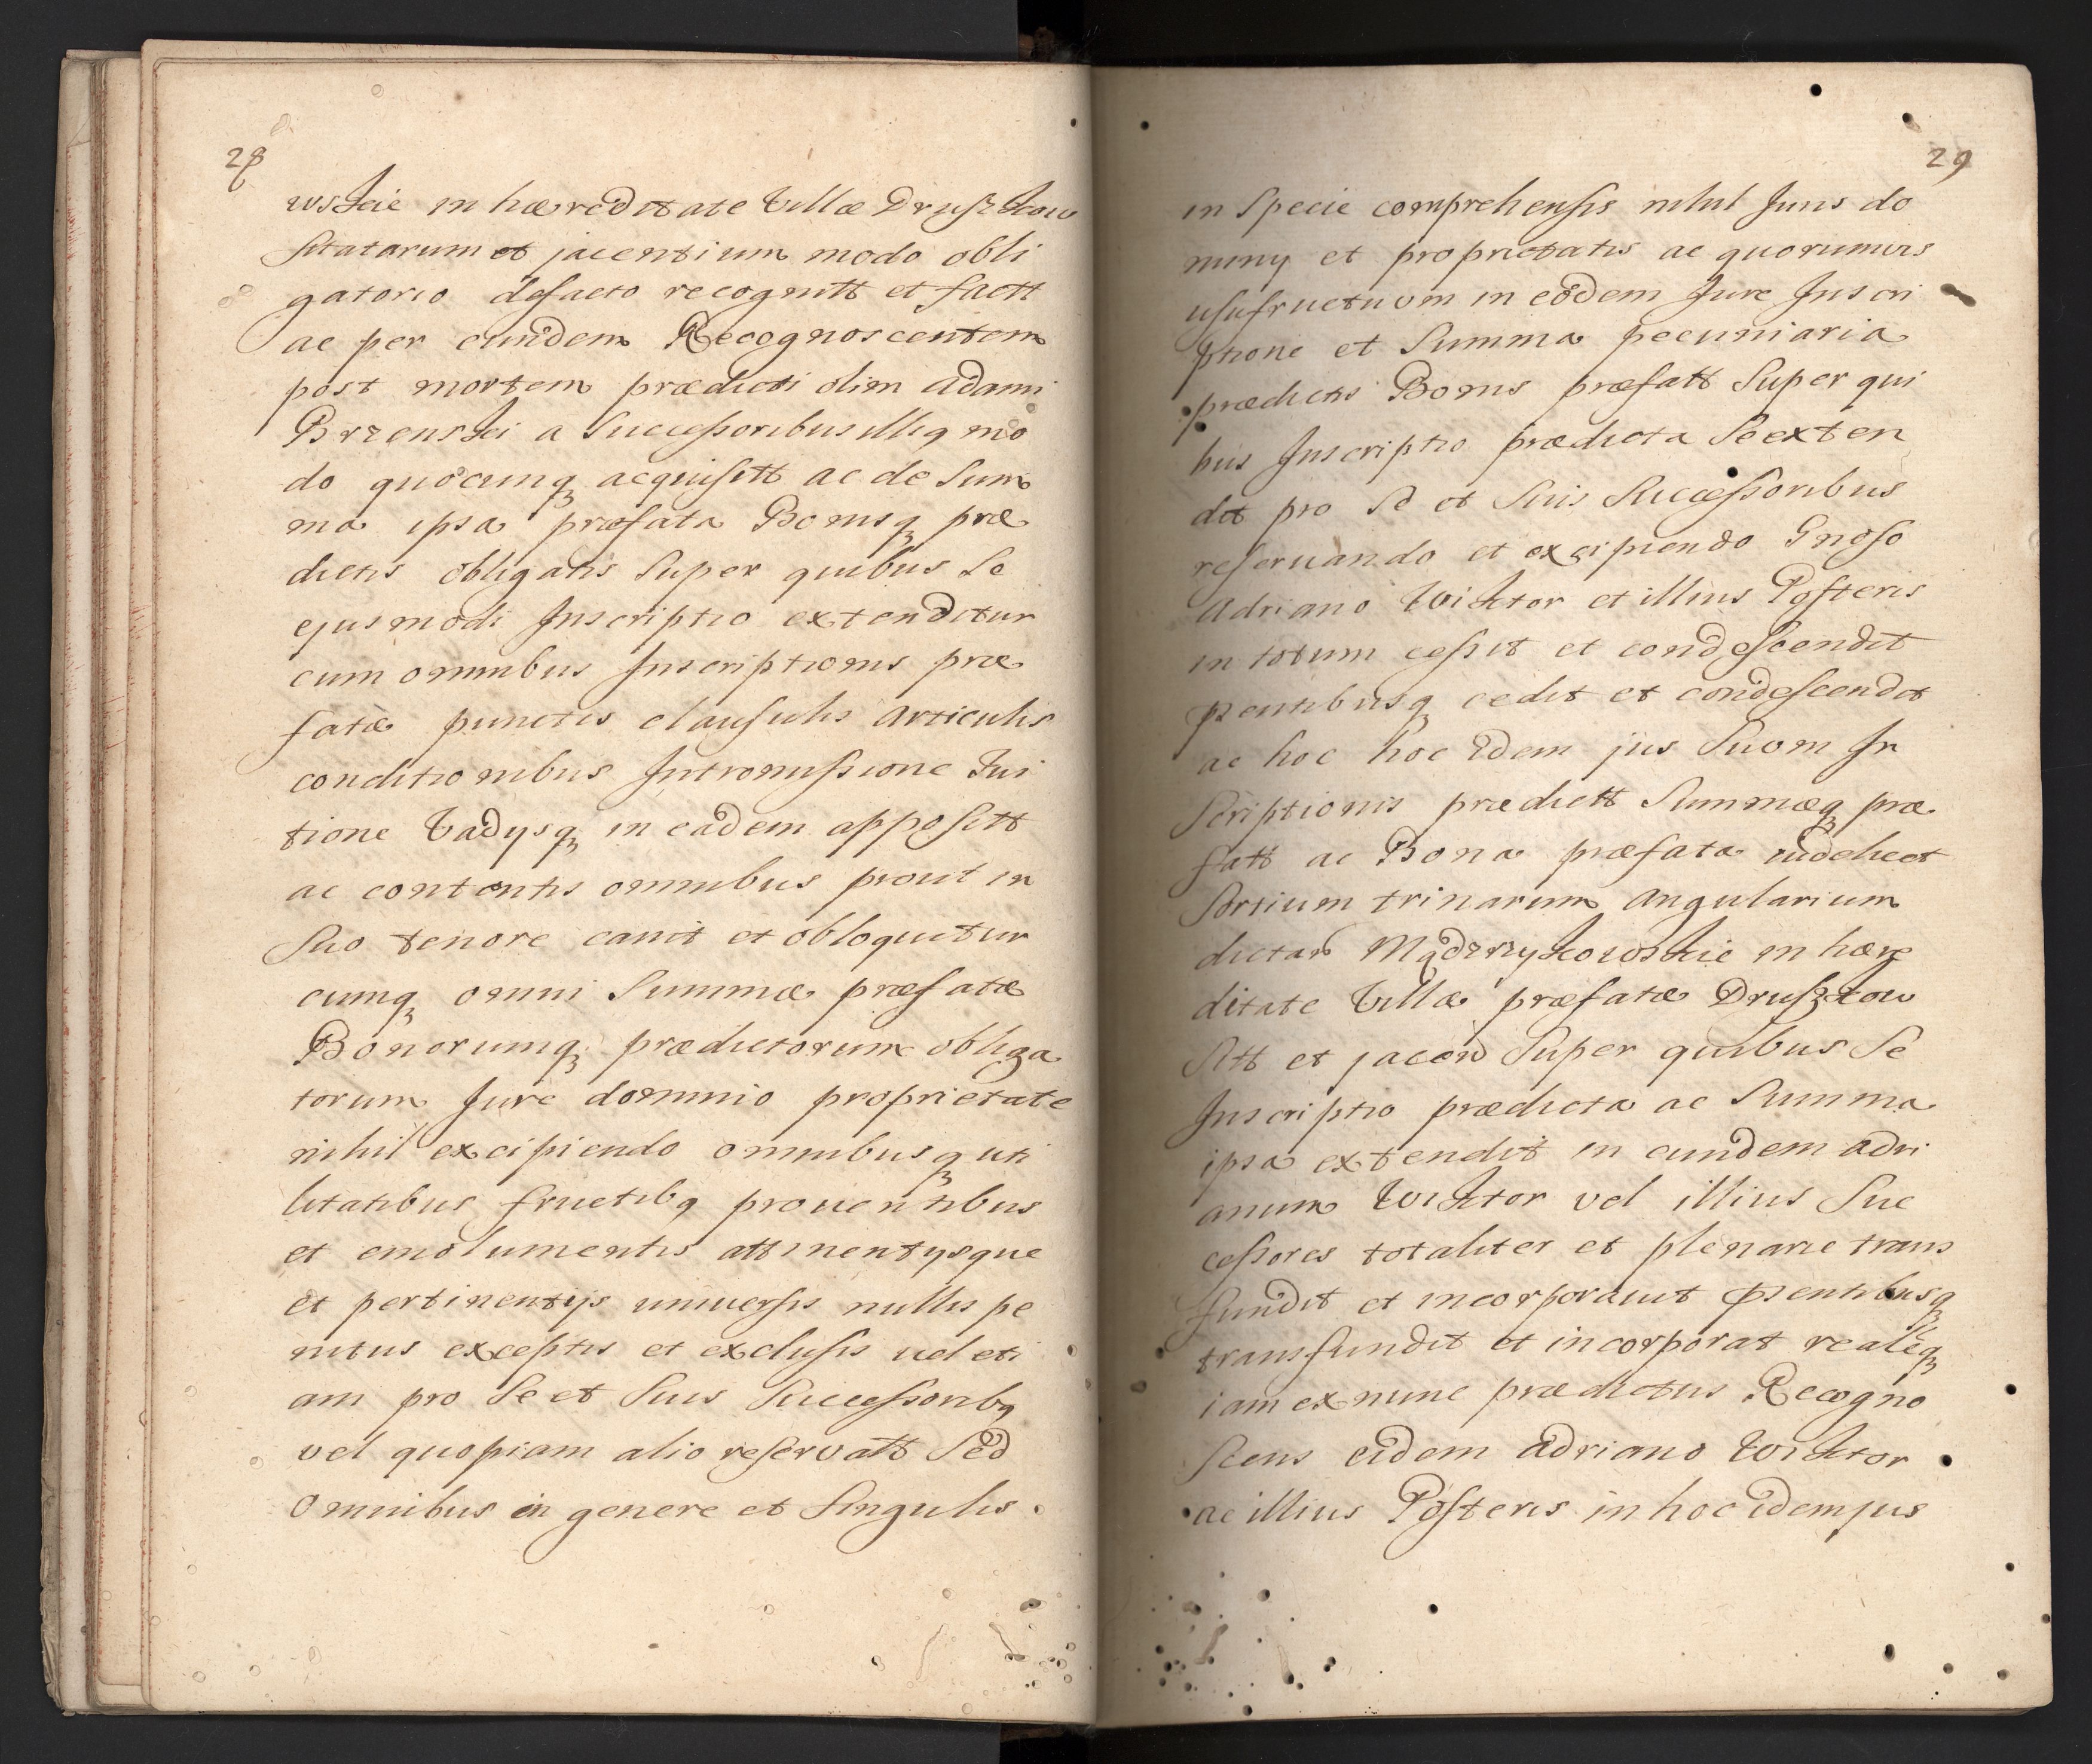 28
wskie in hæreditate Villæ Druszkow
sitatarum et jacentium modo obli
gatorio defacto recognitt et factt
ac per eundem Recognoscentem
post mortem prædicti olim Adami
Brzenskei a Successoribus illiq mo
do quocunq acquisitt ac de Sum
ma ipsa præfata Bonisq præ
dictis obligatis Super quibus Se
ejusmodi Inscriptio extenditur
cum omnibus Inscriptionis præ
fatæ punctis clausulis Articulis
conditionibus Intromissione Tui
tione Vadysq in eadem appositt
ac contentis omnibus prout in
Suo tenore canit et obloquitur
cumq omni Summæ præfatæ
Bonorumq prædictorum obliga
torum Jure dominio proprietate
nihil excipiendo omnibusq uti
litatibus fructibq prouentibus
et emolumentis attinentysque
et pertinentijs uniuersis nullis pe
nitus exceptis et exclusis uel eti
am pro Se et Suis Successoribq
vel quopiam alio reservatt Sed
Omnibus in genere et Singulis
29
in Specie comprehensis nihil Juris do
miny et proprietatis ac quorumvis
usufructuum in eodem Jure Inscri
ptione et Summa pecuniaria
prædictis Bonis præfatt Super qui
bus Inscriptio prædicta Se exten
dit pro Se et Suis Successoribus
reseruando et excipiendo Gnoso
Adriano Wiktor et illius Posteris
in totum cessit et condescendit
pzentibusq cedit et condescendit
ac hoc hoc idem jus Suum In
Scriptionis prædictt Summæq præ
fatt ac Bona præfata uidelicet
Sortium trinarum Angularium
dictar Mądrzykowskie in hære
ditate Villæ præfatæ Druszkow
Sitt et jacen Super quibus Se
Inscriptio prædicta ac Summa
ipsa extendit in eundem Adri
anum Wiktor vel illius Suc
cessores totaliter et plenarie trans
fundit et incorporauit pzentibusq
transfundit et incorporat realeq
iam ex nunc prædictus Recogno
Scens eidem Adriano Wiktor
ac illius Posteris in hoc idem jus